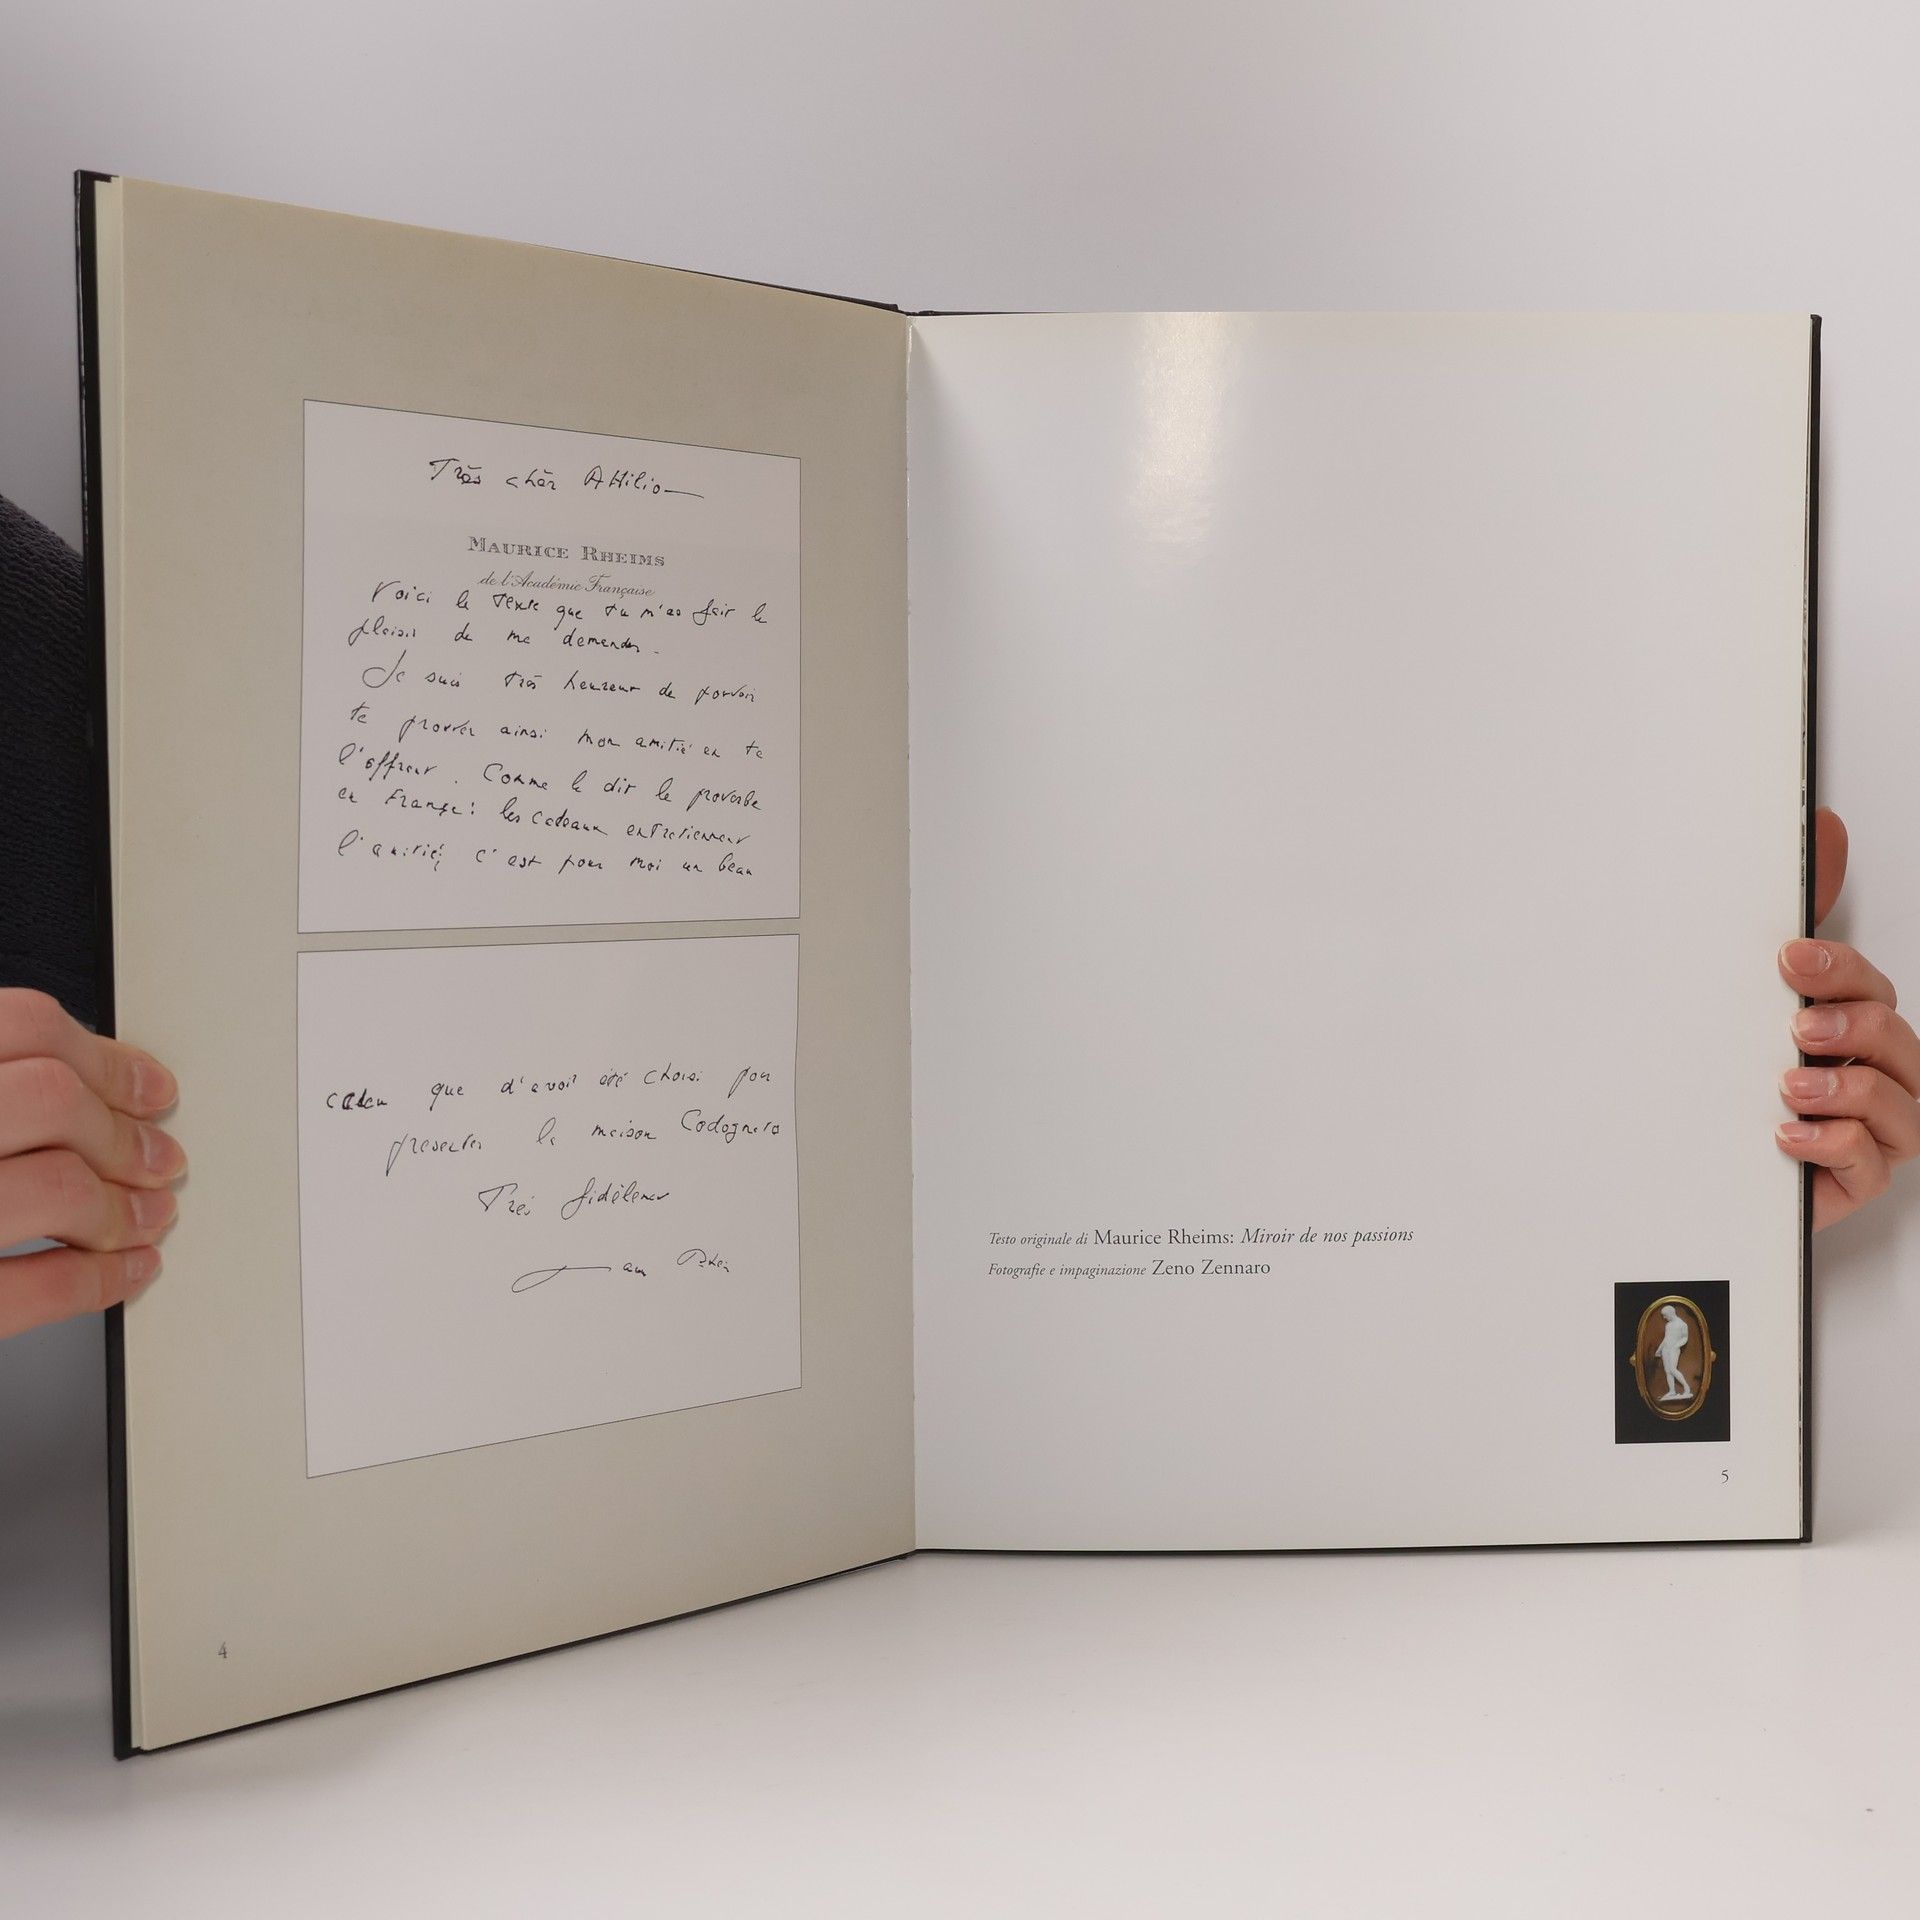 Très chèr Attilio
MAURICE RHEIMS
de l'Académie Française
Voici le texte que tu m'as fait le
plaisir de me demander.
Je suis très heureux de pouvoir
te prouver ainsi mon amitié en te
l'offrant. Comme le dit le proverbe
en France: les cadeaux entretiennent
l'amitié, c'est pour moi un beau
cadeau que d'avoir été choisi pour
presenter la maison Codognato
Très fidèlement
4
Testo originale di Maurice Rheims: Miroir de nos passions
Fotografie e impaginazione Zeno Zennaro
5